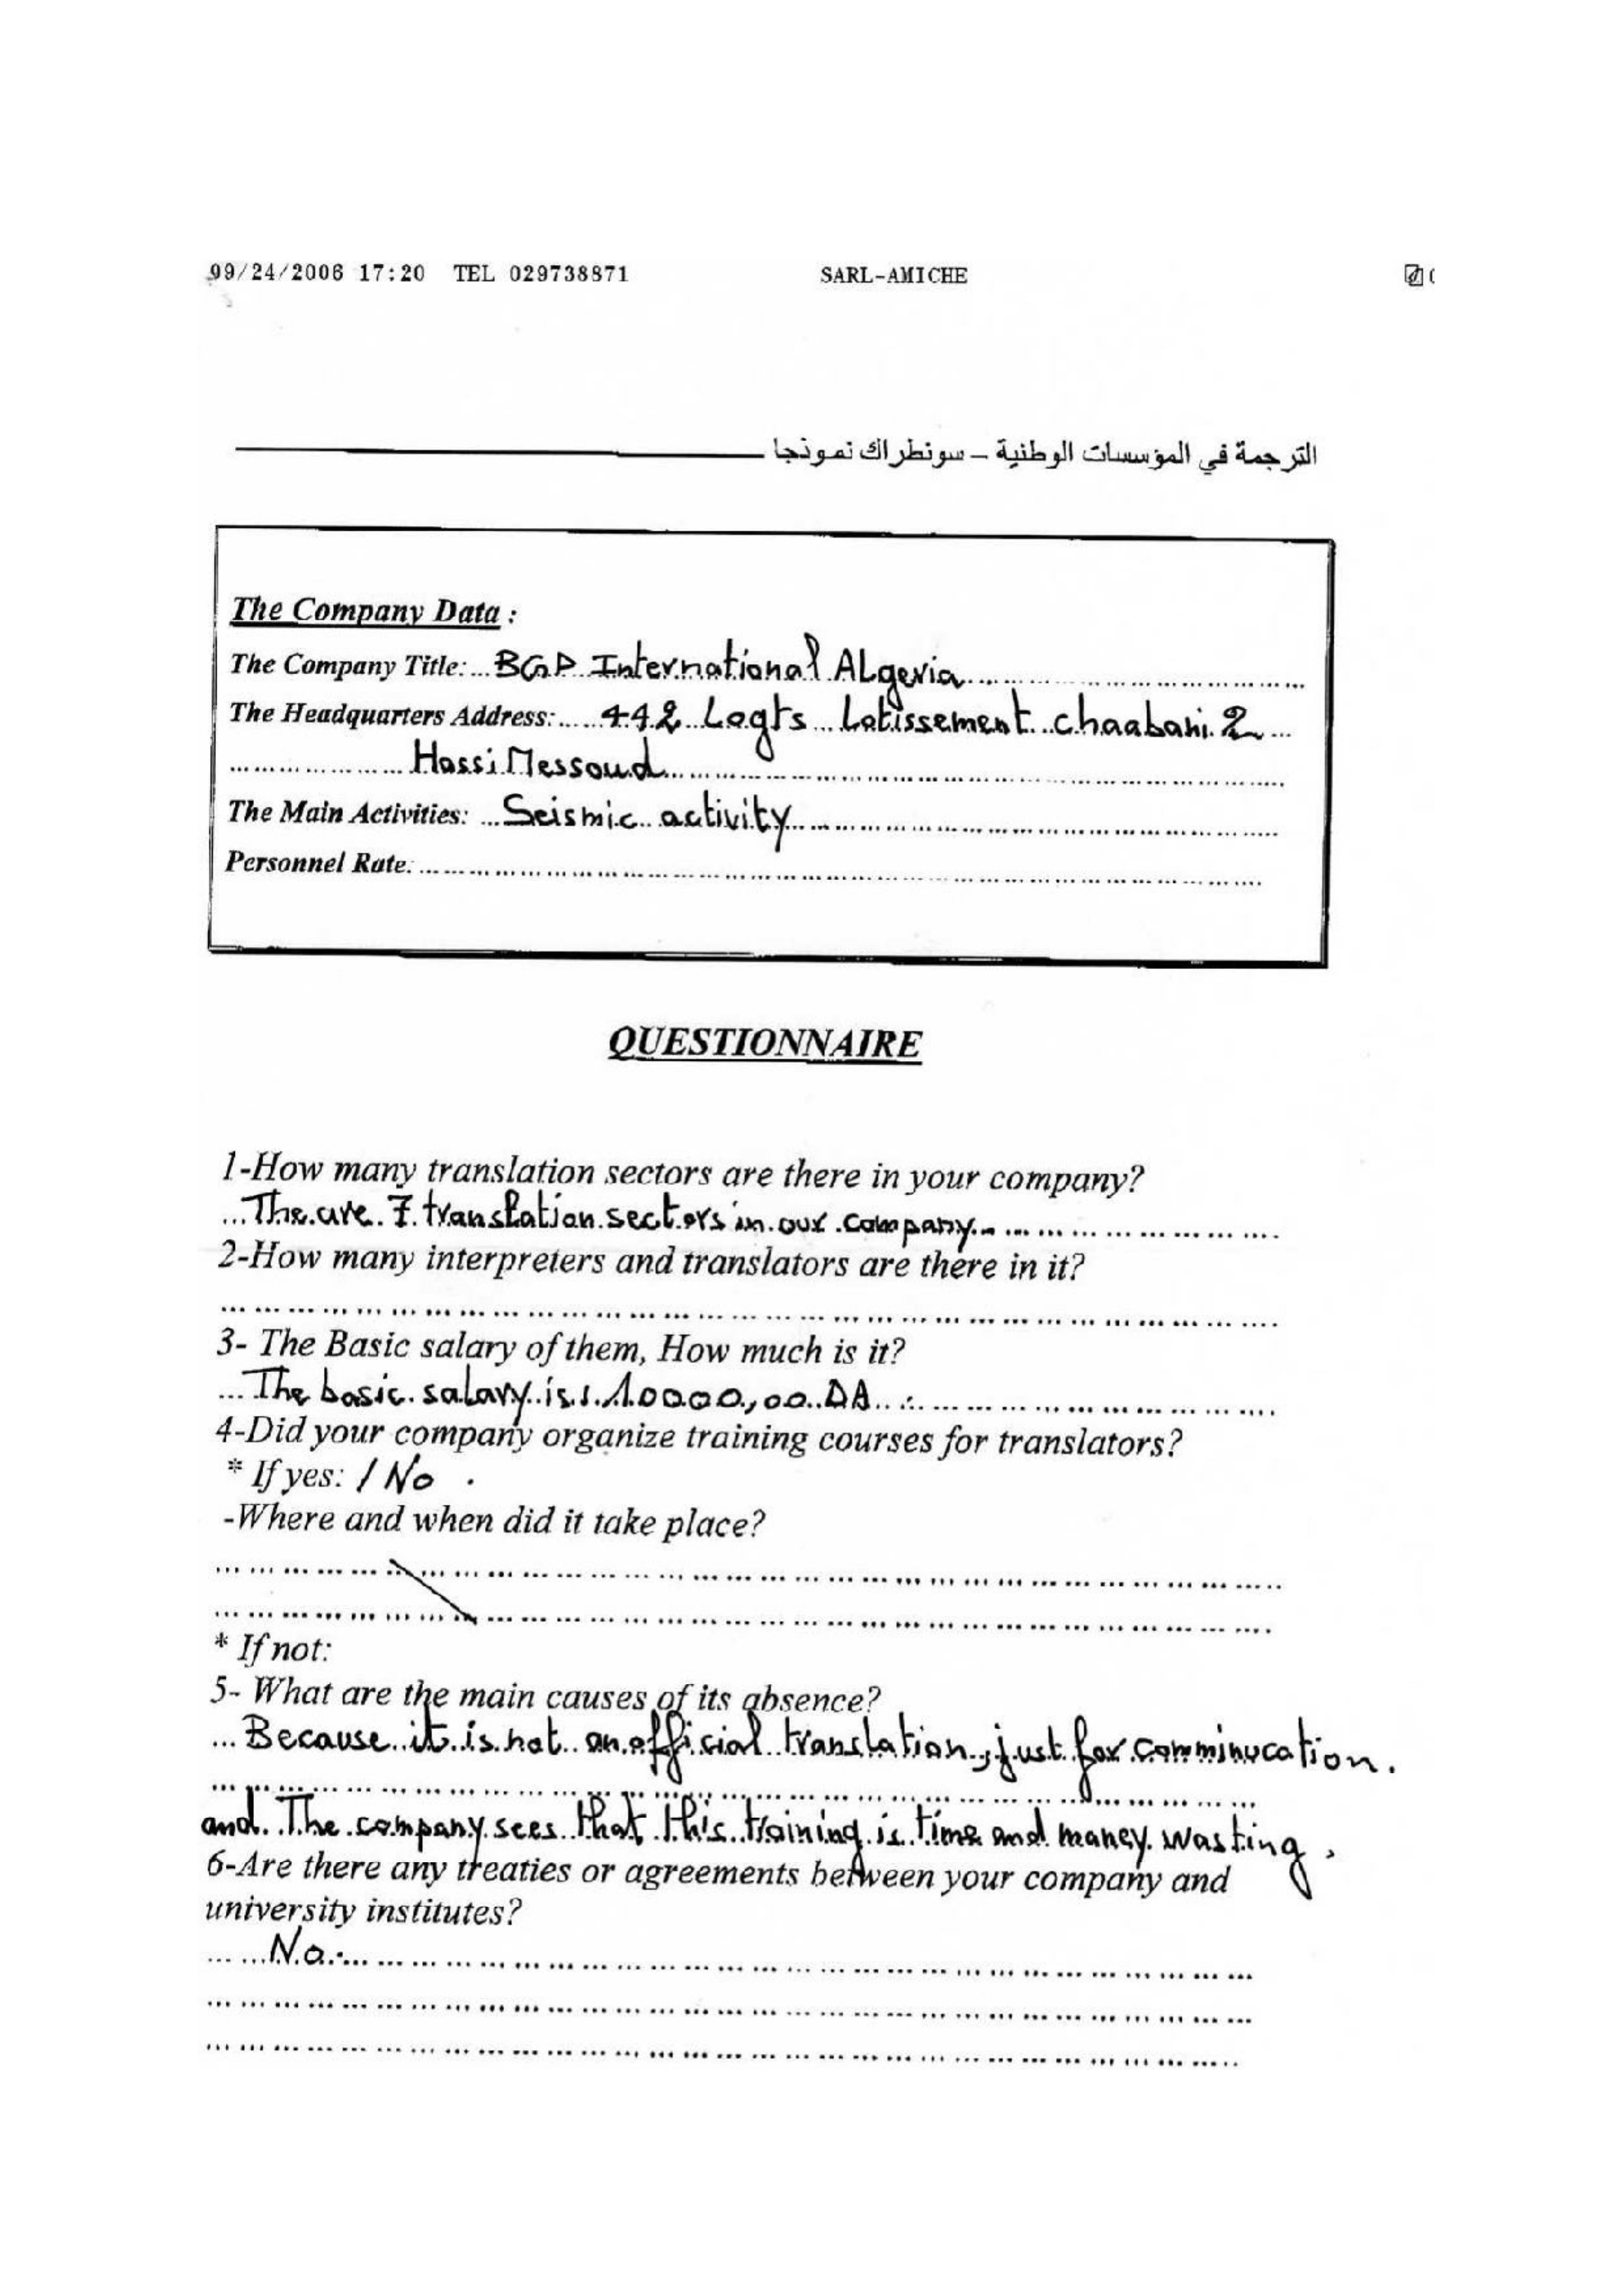 99/24/2006 17:20 TEL 029738871 SARL-AMICHE
الترجمة في المؤسسات الوطنية – سونطراك نموذجا
The Company Data :
The Company Title: BGP International ALgeria
The Headquarters Address: 442 Logts Lotissement chaabani 2
Hassi Messoud
The Main Activities: Seismic activity
Personnel Rate:
QUESTIONNAIRE
1-How many translation sectors are there in your company?
The are 7 translation sectors in our company
2-How many interpreters and translators are there in it?
3- The Basic salary of them, How much is it?
The basic salary is : 10000,00 DA
4-Did your company organize training courses for translators?
* If yes: / No .
-Where and when did it take place?
* If not:
5- What are the main causes of its absence?
Because it is not an official translation, just for comminucation.
and The company sees that this training is time and money wasting.
6-Are there any treaties or agreements between your company and
university institutes?
No.